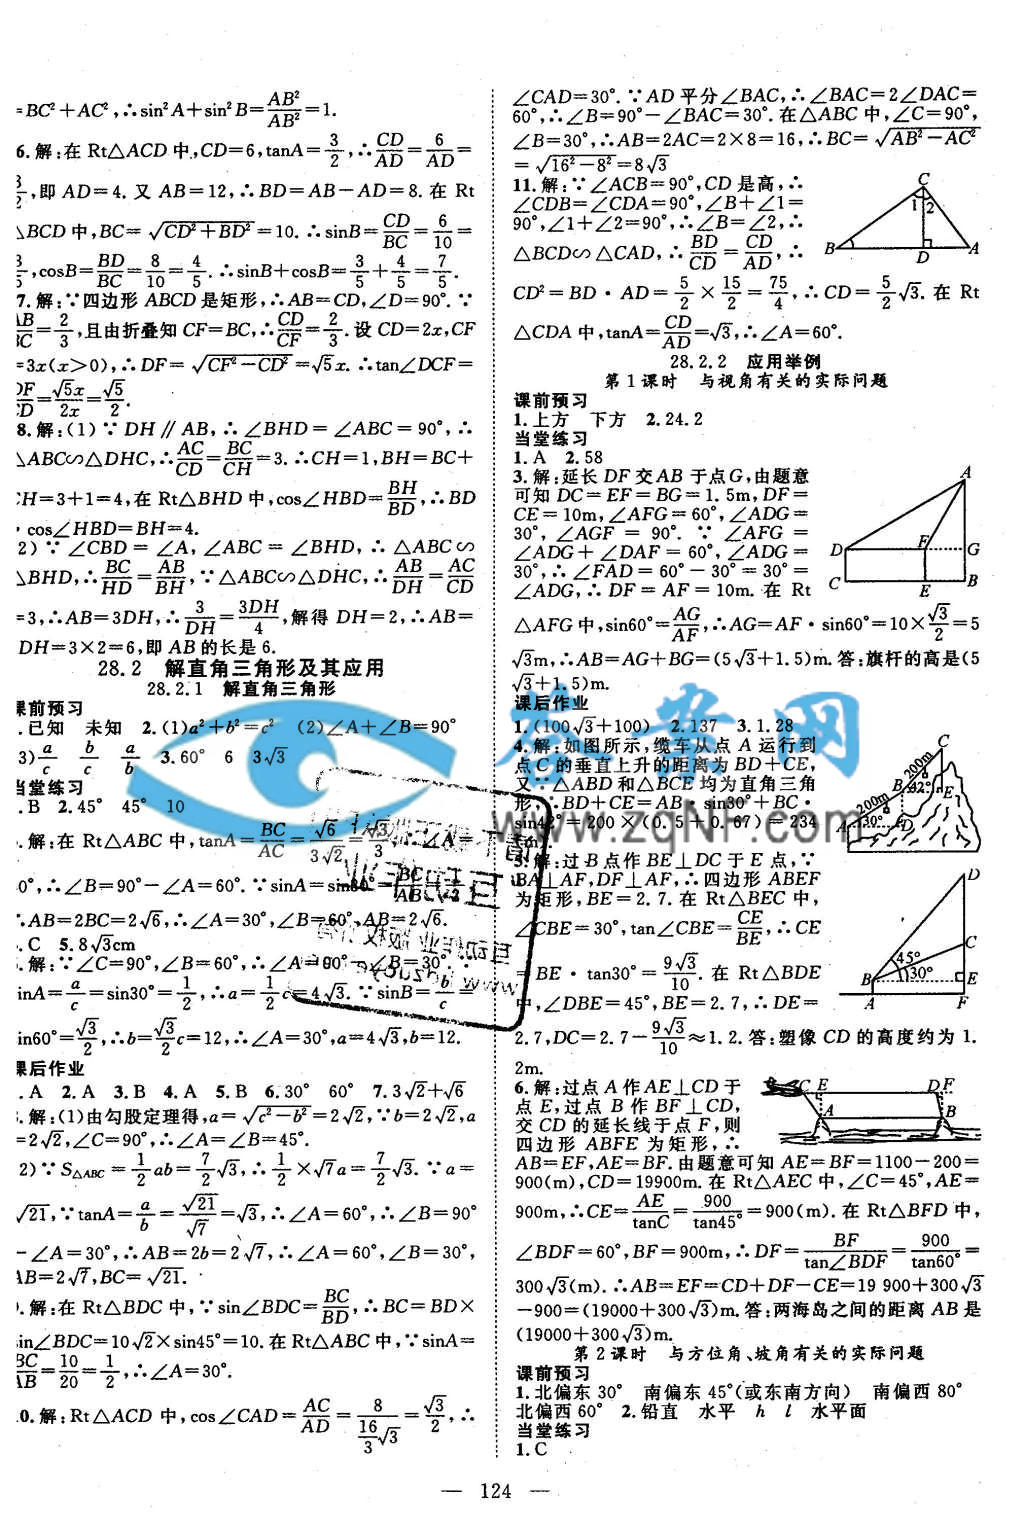 =BC²+AC²,∴sin²A+sin²B=AB²/AB²=1.
6.解:在Rt△ACD中,CD=6,tanA=3/2,∴CD/AD=6/AD=
3/2,即AD=4.又AB=12,∴BD=AB-AD=8.在Rt
△BCD中,BC=√(CD²+BD²)=10.∴sinB=CD/BC=6/10=
3/5,cosB=BD/BC=8/10=4/5.∴sinB+cosB=3/5+4/5=7/5.
7.解:∵四边形ABCD是矩形,∴AB=CD,∠D=90°.∵
AB/BC=2/3,且由折叠知CF=BC,∴CD/CF=2/3.设CD=2x,CF
=3x(x>0),∴DF=√(CF²-CD²)=√5x.∴tan∠DCF=
DF/CD=√5x/2x=√5/2.
8.解:(1)∵DH∥AB,∴∠BHD=∠ABC=90°,∴
△ABC∽△DHC,∴AC/CD=BC/CH=3.∴CH=1,BH=BC+
CH=3+1=4,在Rt△BHD中,cos∠HBD=BH/BD,∴BD
·cos∠HBD=BH=4.
2)∵∠CBD=∠A,∠ABC=∠BHD,∴△ABC∽
△BHD,∴BC/HD=AB/BH,∵△ABC∽△DHC,∴AB/DH=AC/CD
=3,∴AB=3DH,∴3/DH=3DH/4,解得DH=2,∴AB=
DH=3×2=6,即AB的长是6.
28.2 解直角三角形及其应用
28.2.1 解直角三角形
课前预习
.已知 未知 2.(1)a²+b²=c² (2)∠A+∠B=90°
3)a/c b/c a/b 3.60° 6 3√3
当堂练习
.B 2.45° 45° 10
.解:在Rt△ABC中,tanA=BC/AC=√6/3√2=√3/3,∴∠A=
30°,∴∠B=90°-∠A=60°.∵sinA=sin30°=BC/AB=1/2
∴AB=2BC=2√6,∴∠A=30°,∠B=60°,AB=2√6.
.C 5.8√3cm
.解:∵∠C=90°,∠B=60°,∴∠A=90°-∠B=30°.∵
sinA=a/c=sin30°=1/2,∴a=1/2c=4√3.∵sinB=b/c=
sin60°=√3/2,∴b=√3/2c=12,∴∠A=30°,a=4√3,b=12.
课后作业
.A 2.A 3.B 4.A 5.B 6.30° 60° 7.3√2+√6
.解:(1)由勾股定理得,a=√(c²-b²)=2√2,∵b=2√2,a
=2√2,∠C=90°,∴∠A=∠B=45°.
2)∵S△ABC=1/2ab=7/2√3,∴1/2×√7a=7/2√3.∵a=
√21,∵tanA=a/b=√21/√7=√3,∴∠A=60°,∴∠B=90°
-∠A=30°,∴AB=2b=2√7,∴∠A=60°,∠B=30°,
AB=2√7,BC=√21.
.解:在Rt△BDC中,∵sin∠BDC=BC/BD,∴BC=BD×
sin∠BDC=10√2×sin45°=10.在Rt△ABC中,∵sinA=
BC/AB=10/20=1/2,∴∠A=30°.
10.解:Rt△ACD中,cos∠CAD=AC/AD=8/(16/3√3)=√3/2,∴
∠CAD=30°.∵AD平分∠BAC,∴∠BAC=2∠DAC=
60°,∴∠B=90°-∠BAC=30°.在△ABC中,∠C=90°,
∠B=30°,∴AB=2AC=2×8=16,∴BC=√(AB²-AC²)
=√(16²-8²)=8√3
11.解:∵∠ACB=90°,CD是高,∴
∠CDB=∠CDA=90°,∠B+∠1=
90°,∠1+∠2=90°,∴∠B=∠2,∴
△BCD∽△CAD,∴BD/CD=CD/AD,∴
CD²=BD·AD=5/2×15/2=75/4,∴CD=5/2√3.在Rt
△CDA中,tanA=CD/AD=√3,∴∠A=60°.
C
1
2
B
D
A
28.2.2 应用举例
第1课时 与视角有关的实际问题
课前预习
1.上方 下方 2.24.2
当堂练习
1.A 2.58
3.解:延长DF交AB于点G,由题意
可知DC=EF=BG=1.5m,DF=
CE=10m,∠AFG=60°,∠ADG=
30°,∠AGF=90°.∵∠AFG=
∠ADG+∠DAF=60°,∠ADG=
30°,∴∠FAD=60°-30°=30°=
∠ADG,∴DF=AF=10m.在Rt
△AFG中,sin60°=AG/AF,∴AG=AF·sin60°=10×√3/2=5
√3m,∴AB=AG+BG=(5√3+1.5)m.答:旗杆的高是(5
√3+1.5)m.
A
D
F
G
C
E
B
课后作业
1.(100√3+100) 2.137 3.1.28
4.解:如图所示,缆车从点A运行到
点C的垂直上升的距离为BD+CE,
又∵△ABD和△BCE均为直角三角
形,∴BD+CE=AB·sin30°+BC·
sin42°=200×(0.5+0.67)=234
(m).
C
200m
B
42°
E
200m
A
30°
D
5.解:过B点作BE⊥DC于E点,∵
BA⊥AF,DF⊥AF,∴四边形ABEF
为矩形,BE=2.7.在Rt△BEC中,
∠CBE=30°,tan∠CBE=CE/BE,∴CE
=BE·tan30°=9√3/10.在Rt△BDE
中,∠DBE=45°,BE=2.7,∴DE=
2.7,DC=2.7-9√3/10≈1.2.答:塑像CD的高度约为1.
2m.
D
C
45°
30°
B
E
A
F
6.解:过点A作AE⊥CD于
点E,过点B作BF⊥CD,
交CD的延长线于点F,则
四边形ABFE为矩形,∴
AB=EF,AE=BF.由题意可知AE=BF=1100-200=
900(m),CD=19900m.在Rt△AEC中,∠C=45°,AE=
900m,∴CE=AE/tanC=900/tan45°=900(m).在Rt△BFD中,
∠BDF=60°,BF=900m,∴DF=BF/tan∠BDF=900/tan60°=
300√3(m).∴AB=EF=CD+DF-CE=19 900+300√3
-900=(19000+300√3)m.答:两海岛之间的距离AB是
(19000+300√3)m.
C E
D F
A
B
第2课时 与方位角、坡角有关的实际问题
课前预习
1.北偏东30° 南偏东45°(或东南方向) 南偏西80°
北偏西60° 2.铅直 水平 h l 水平面
当堂练习
1.C
答案网
www.zqNF.com
— 124 —